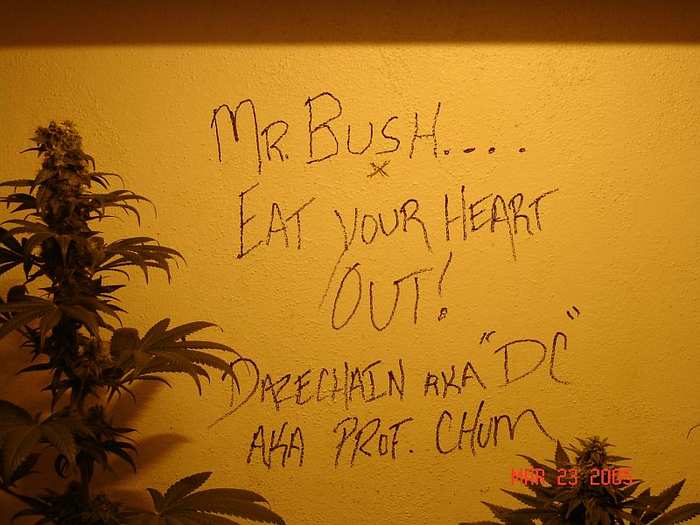 MR. BUSH....
x
EAT YOUR HEART
OUT!
DAZECHAIN AKA "DC"
AKA PROF. CHUM
MAR 23 2005